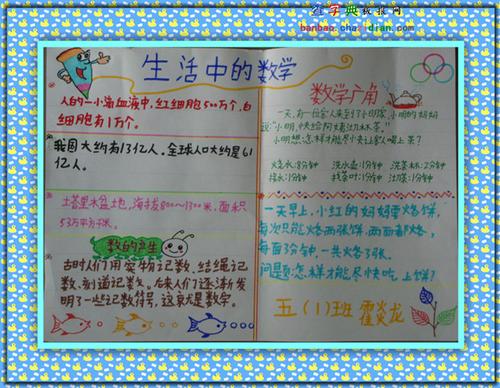 查字典板报网
banbao.chazidian.com
生活中的数学
人的一小滴血液中,红细胞500万个,白
细胞有1万个。
我国大约有13亿人。全球人口大约是61
亿人。
土塔里木盆地,海拔800~1300米,面积
53万平方千米。
数的产生
古时人们用实物记数、结绳记
数、刻道记数。后来人们逐渐发
明了一些记数符号,这就是数字。
数学广角
一天,有一位客人来到了小明家,小明的妈妈
说:“小明,快给阿姨沏杯茶。”
小明想:怎样才能尽快让客人喝上茶?
烧水:8分钟 洗水壶:1分钟 洗茶杯:2分钟
接水:1分钟 找茶叶:1分钟 沏茶:1分钟
一天早上,小红的妈妈要烙饼,
每次只能烙两张饼,两面都烙,
每面3分钟,一共烙了3张。
问题:怎样才能尽快吃上饼?
五(1)班 霍炎龙